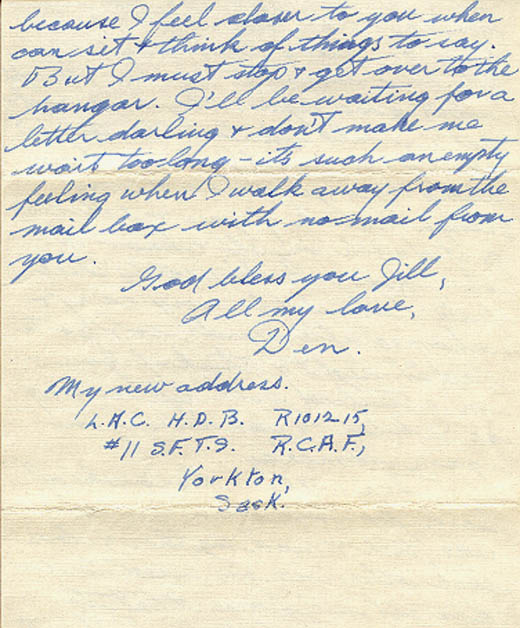 because I feel closer to you when
can sit + think of things to say.
But I must stop + get over to the
hangar. I'll be waiting for a
letter darling + don't make me
wait too long - it's such an empty
feeling when I walk away from the
mail box with no mail from
you.
God bless you Jill,
All my love,
Den.
My new address.
L.A.C. H.D.B. R101215,
#11 S.F.T.S. R.C.A.F.,
Yorkton,
Sask.